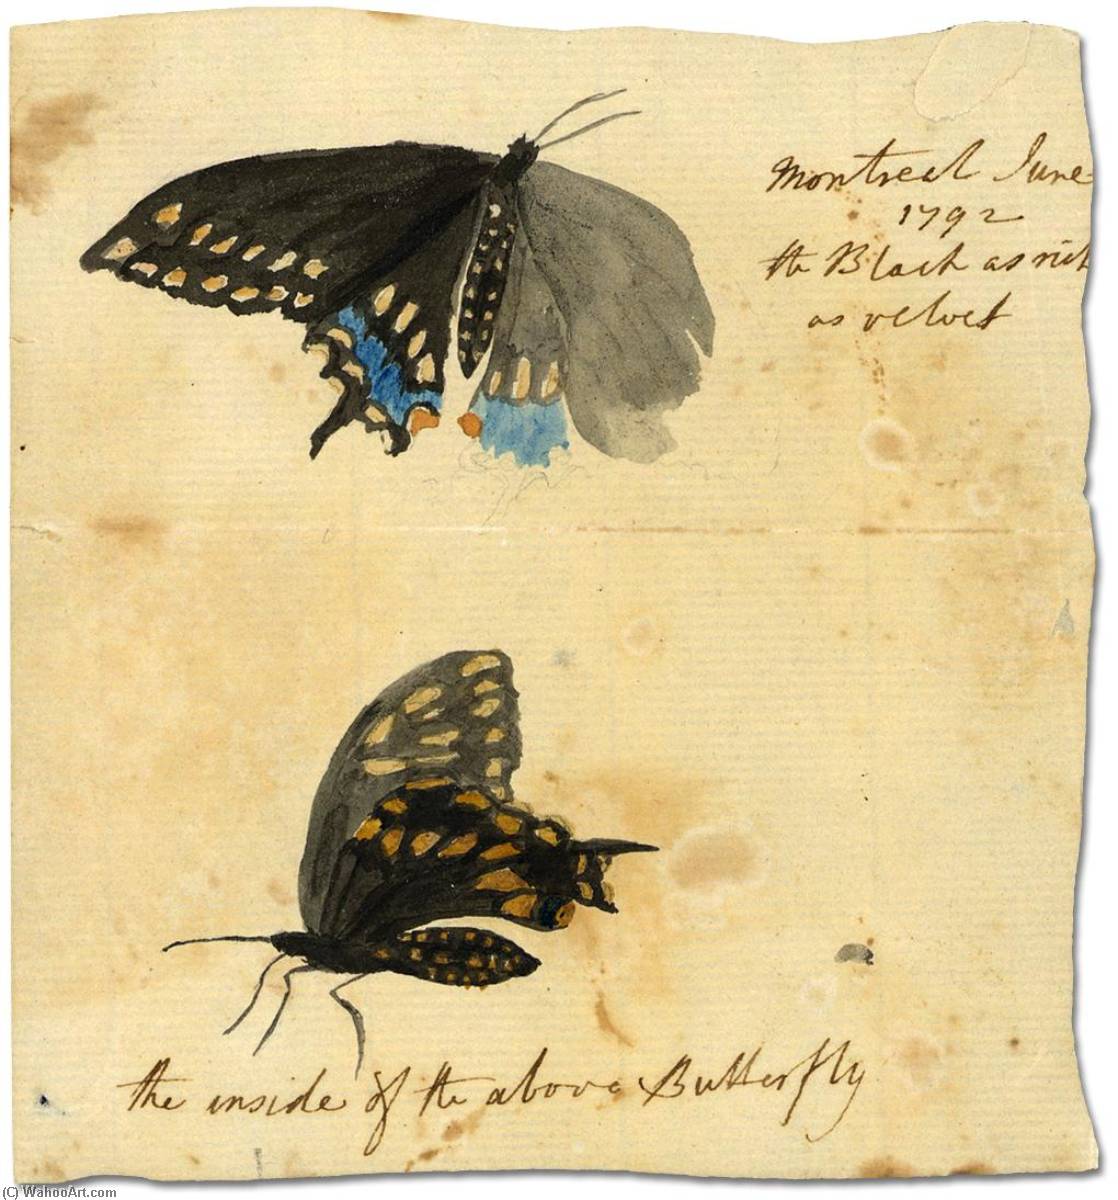 Montreal June
1792
the Black as rich
as velvet
the inside of the above Butterfly
(C) WahooArt.com